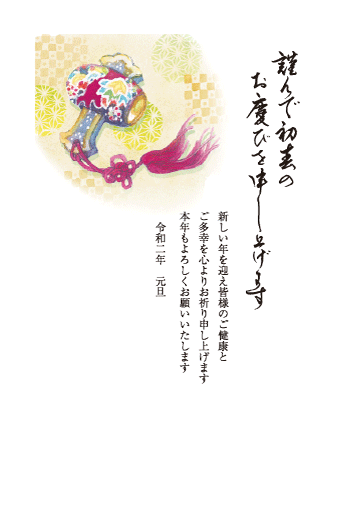 謹んで初春の
お慶びを申し上げます
新しい年を迎え皆様のご健康と
ご多幸を心よりお祈り申し上げます
本年もよろしくお願いいたします
令和二年　元旦